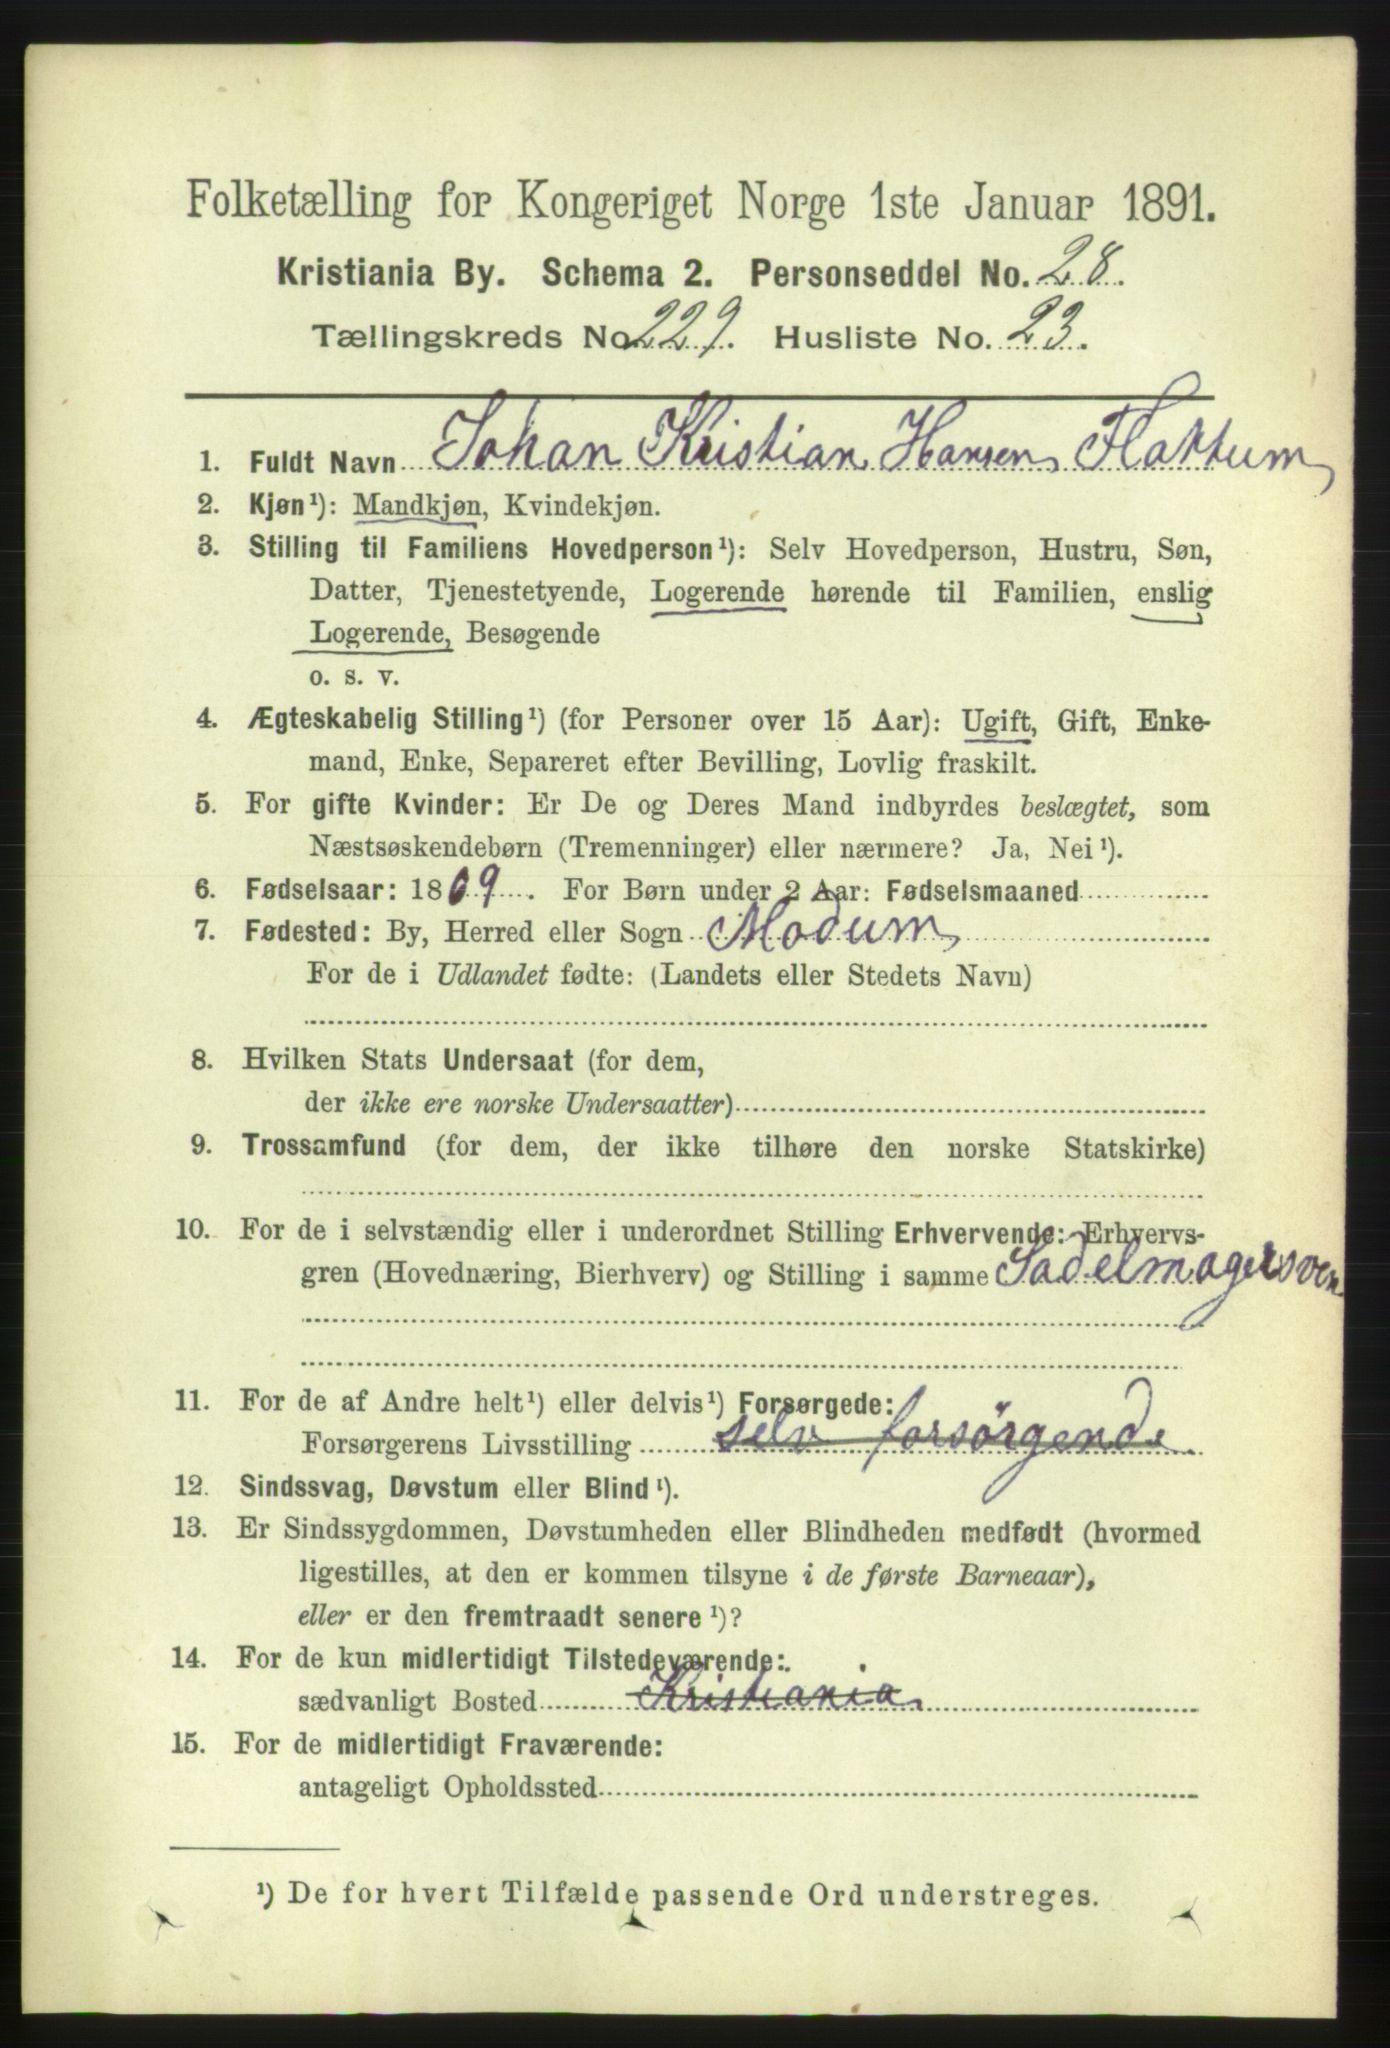 Folketælling for Kongeriget Norge 1ste Januar 1891.
Kristiania By. Schema 2. Personseddel No. 28.
Tællingskreds No. 229. Husliste No. 23.
1. Fuldt Navn Johan Kristian Hansen Flattum
2. Kjøn¹): Mandkjøn, Kvindekjøn.
3. Stilling til Familiens Hovedperson¹): Selv Hovedperson, Hustru, Søn,
Datter, Tjenestetyende, Logerende hørende til Familien, enslig
Logerende, Besøgende
o. s. v.
4. Ægteskabelig Stilling¹) (for Personer over 15 Aar): Ugift, Gift, Enke-
mand, Enke, Separeret efter Bevilling, Lovlig fraskilt.
5. For gifte Kvinder: Er De og Deres Mand indbyrdes beslægtet, som
Næstsøskendebørn (Tremenninger) eller nærmere? Ja, Nei¹).
6. Fødselsaar: 1869. For Børn under 2 Aar: Fødselsmaaned
7. Fødested: By, Herred eller Sogn Modum
For de i Udlandet fødte: (Landets eller Stedets Navn)
8. Hvilken Stats Undersaat (for dem,
der ikke ere norske Undersaatter)
9. Trossamfund (for dem, der ikke tilhøre den norske Statskirke)
10. For de i selvstændig eller i underordnet Stilling Erhvervende: Erhvervs-
gren (Hovednæring, Bierhverv) og Stilling i samme Sadelmagersven
11. For de af Andre helt¹) eller delvis¹) Forsørgede:
Forsørgerens Livsstilling selv forsörgende
12. Sindssvag, Døvstum eller Blind¹).
13. Er Sindssygdommen, Døvstumheden eller Blindheden medfødt (hvormed
ligestilles, at den er kommen tilsyne i de første Barneaar),
eller er den fremtraadt senere¹)?
14. For de kun midlertidigt Tilstedeværende:
sædvanligt Bosted Kristiania
15. For de midlertidigt Fraværende:
antageligt Opholdssted
¹) De for hvert Tilfælde passende Ord understreges.